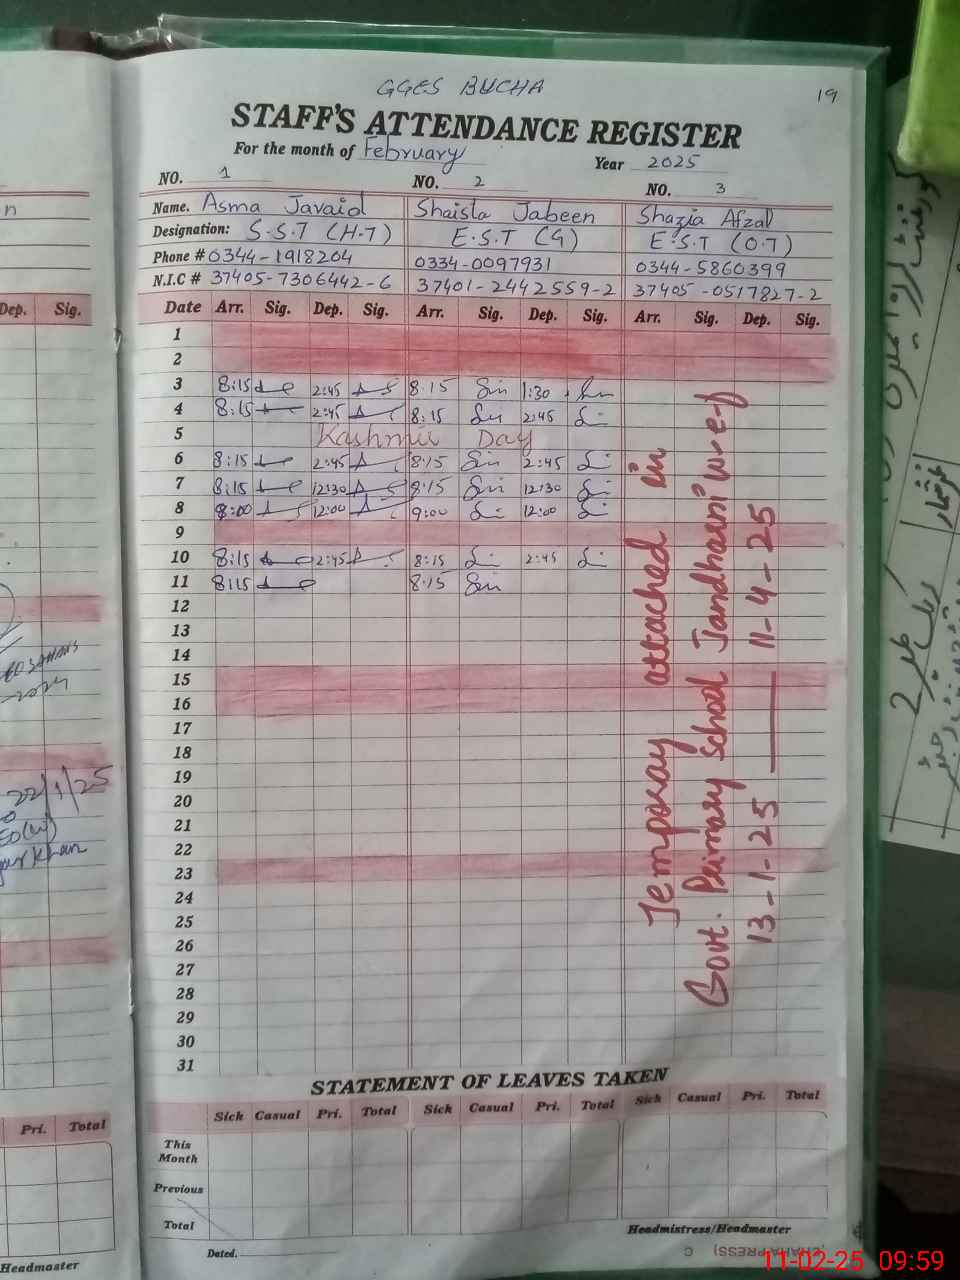 GGES BUCHA
19
STAFF'S ATTENDANCE REGISTER
For the month of February Year 2025
NO. 1 NO. 2 NO. 3
Name. Asma Javaid Shaista Jabeen Shazia Afzal
Designation: S.S.T (H.T) E.S.T (G) E.S.T (O.T)
Phone # 0344-1918204 0334-0097931 0344-5860399
N.I.C # 37405-7306442-6 37401-2442559-2 37405-0517827-2
Dep. Sig. Date Arr. Sig. Dep. Sig. Arr. Sig. Dep. Sig. Arr. Sig. Dep. Sig.
1
2
3 8:15 2:45 8:15 1:30
4 8:15 2:45 8:15 2:45
5 Kashmir Day
6 8:15 2:45 8:15 2:45
7 8:15 12:30 8:15 12:30
8 8:00 12:00 9:00 12:00
9
10 8:15 2:45 8:15 2:45
11 8:15 8:15
12
13
14
15
16
17
18
19
20
21
22
23
24
25
26
27
28
29
30
31
Temporay attached in
Govt. Primary School Jandharni w-e-f
13-1-25 11-4-25
22/1/25
STATEMENT OF LEAVES TAKEN
Pri. Total Sick Casual Pri. Total Sick Casual Pri. Total Sick Casual Pri. Total
This Month
Previous
Total
Headmistress/Headmaster
Dated.
Headmaster
11-02-25 09:59